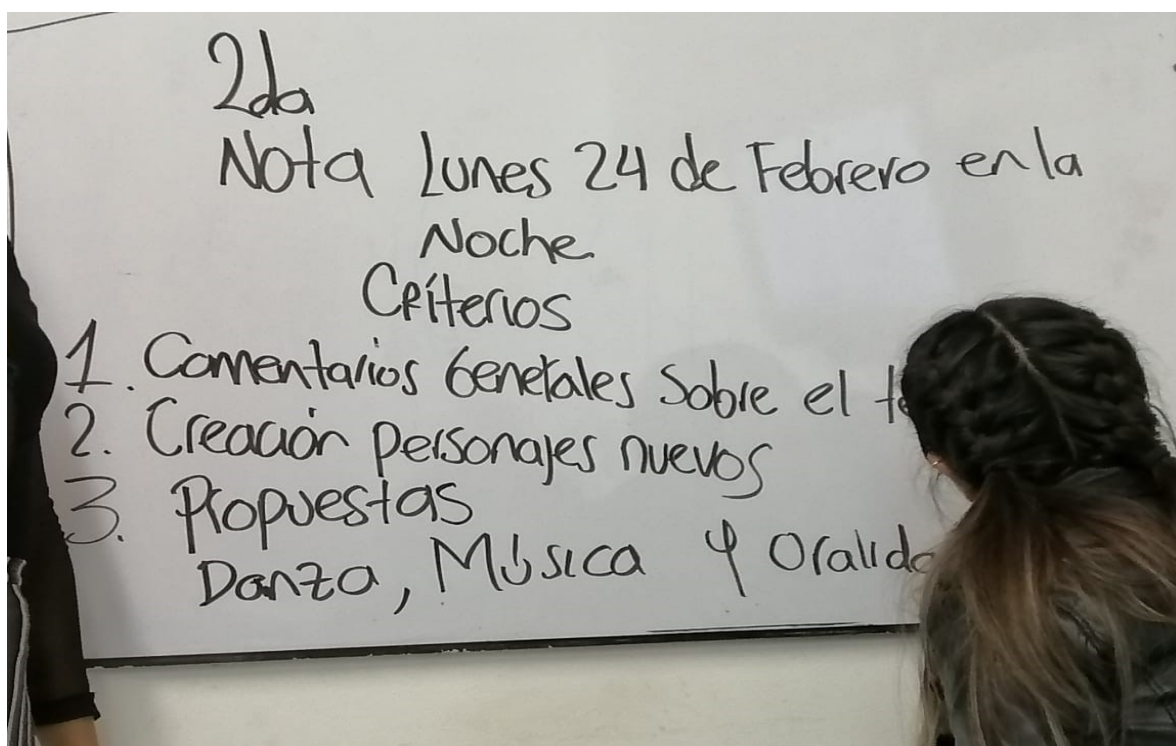 2da
Nota Lunes 24 de Febrero en la
Noche
Críterios
1. Comentarios Generales Sobre el
2. Creación personajes nuevos
3. Propuestas
Danza, Música y